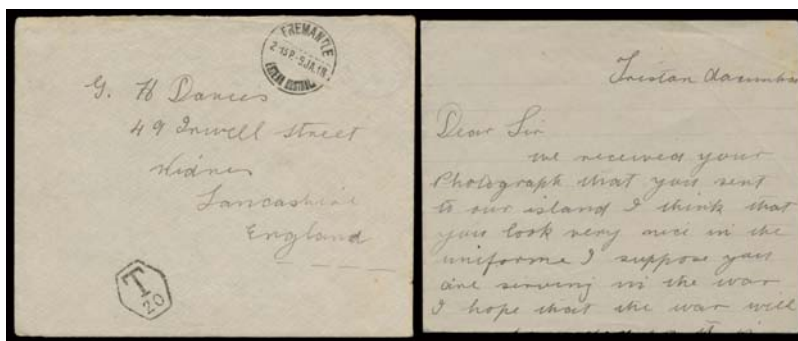 FREMANTLE
G. H Davies
49 Irwell street
Widnes
Lancashire
England
T
20
Tristan dacunha
Dear Sir
we received your
Photograph that you sent
to our island I think that
you look very nice in the
uniforme I suppose you
are serving in the war
I hope that the war will